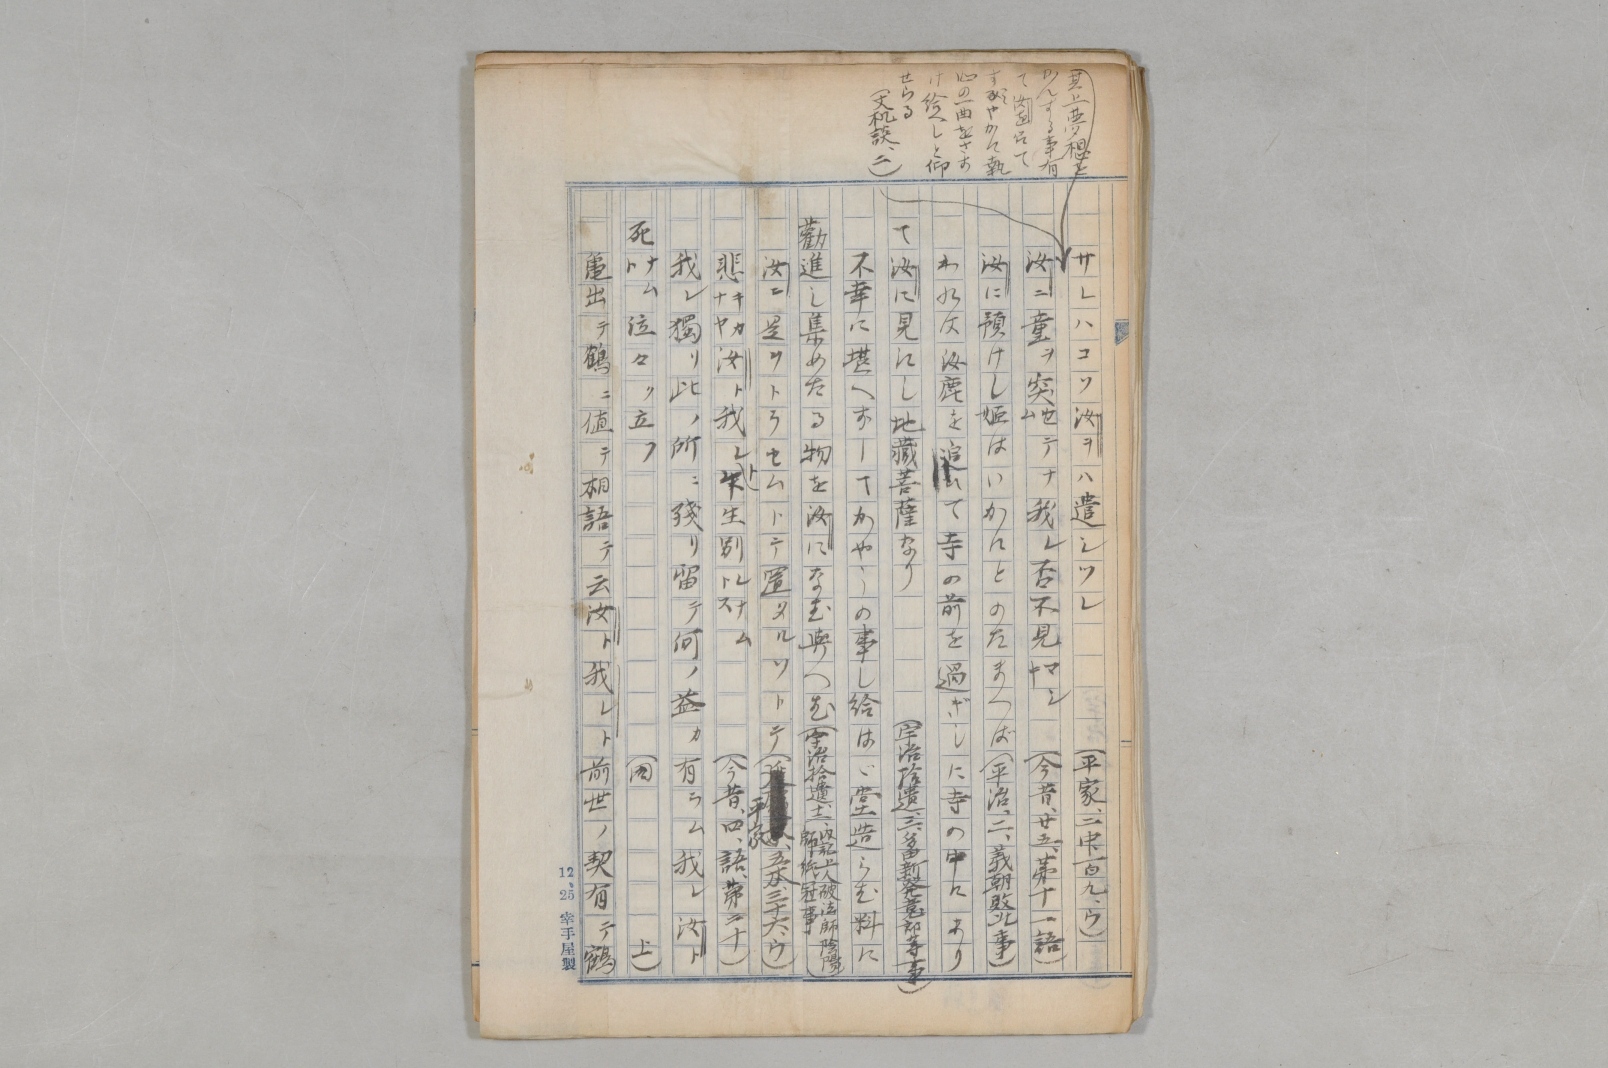 其上夢想を
かんずる事有
て汝を召て
すみやかに執
心の一曲をさづ
け給へしと仰
せらる
（文机談、二）
サレハコソ汝ヲハ遣シツレ（平家、二中、百九、ウ）
汝ニ童ヲ突セムテナ我レ否不見ヤマシ（今昔、廿五、第十一語）
汝に預けし姫はいかにとのたまへば（平治、二、義朝敗北事）
われ汝塵を追いて寺の前を過ぎしに寺の中にあり
て汝に見にし地藏菩薩なり（宇治拾遺、三、多田新発意郎等事）
不幸に堪へずしてかやうの事し給はゞ堂造らむ料に
勸進し集めたる物を汝になむ與へむ（宇治拾遺十二、内記上人破法師陰陽師紙冠事）
汝ニ是ヲトラセムトテ置タルソトテ（平家、五本三十六、ウ）
悲キカナヤ汝ト我レト生別レナムトス（今昔、四、語、第二十）
我レ獨リ此ノ所ニ殘リ留テ何ノ益カ有ラム我レ汝ト
死ナムト泣々ク立フ（同上）
亀出テ鶴ニ値テ相語テ云汝ト我レト前世ノ契有テ鶴
12、25 幸手屋製